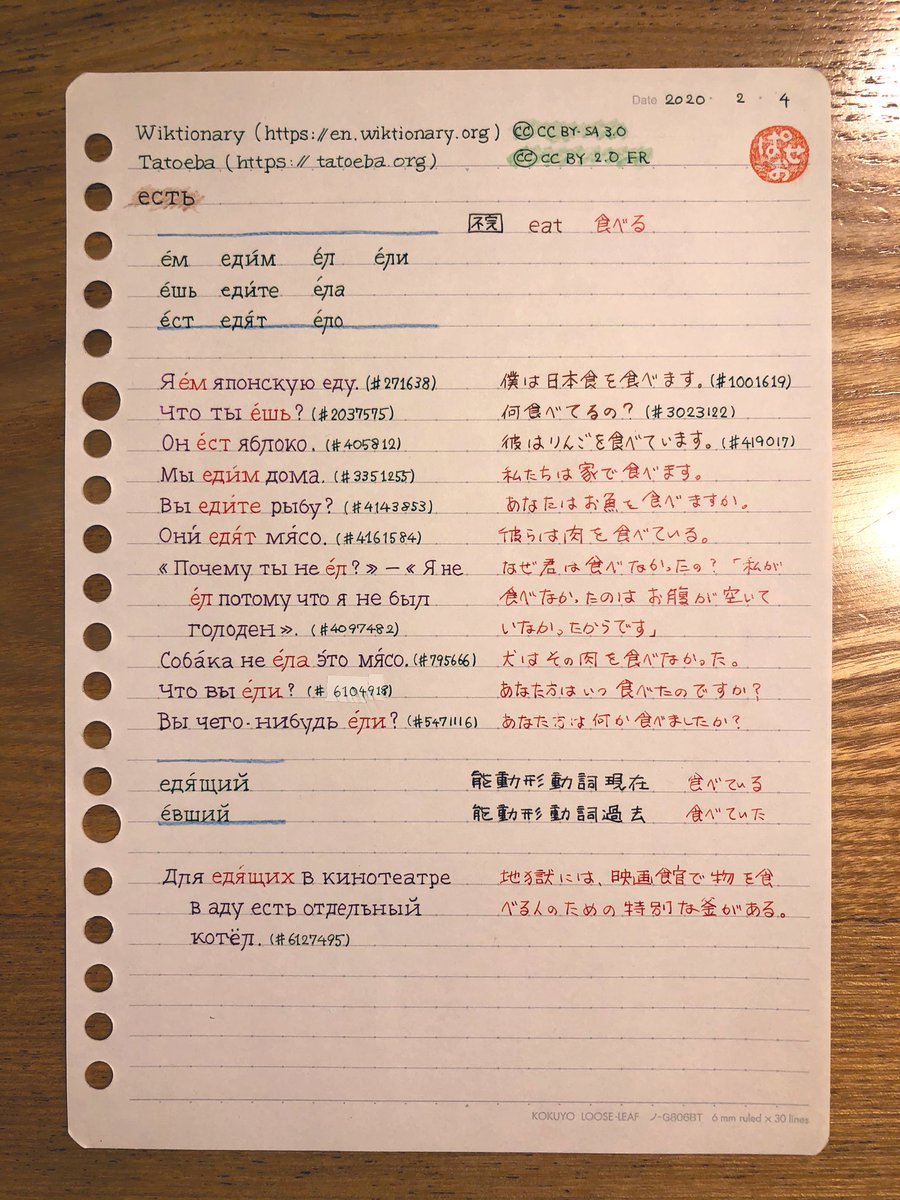 Date 2020 · 2 · 4
Wiktionary (https://en.wiktionary.org) cc CC BY-SA 3.0
Tatoeba (https://tatoeba.org) cc CC BY 2.0 FR
ぱせお
есть
不完 eat 食べる
е́м еди́м е́л е́ли
е́шь еди́те е́ла
е́ст едя́т е́ло
Я е́м японскую еду. (#271638) 僕は日本食を食べます。(#1001619)
Что ты е́шь? (#2037575) 何食べてるの? (#3023122)
Он е́ст яблоко. (#405812) 彼はりんごを食べています。(#419017)
Мы еди́м дома. (#3351255) 私たちは家で食べます。
Вы еди́те рыбу? (#4143853) あなたはお魚を食べますか。
Они́ едя́т мя́со. (#4161584) 彼らは肉を食べている。
«Почему ты не е́л?» – «Я не なぜ君は食べなかったの?「私が
е́л потому что я не был 食べなかったのはお腹が空いて
голоден». (#4097482) いなかったからです」
Соба́ка не е́ла э́то мя́со. (#795666) 犬はその肉を食べなかった。
Что вы е́ли? (#6104918) あなた方はいつ食べたのですか?
Вы чего-нибудь е́ли? (#5471116) あなた方は何か食べましたか?
едя́щий 能動形動詞現在 食べている
е́вший 能動形動詞過去 食べていた
Для едя́щих в кинотеатре 地獄には、映画館で物を食
в аду есть отдельный べる人のための特別な釜がある。
котёл. (#6127495)
KOKUYO LOOSE-LEAF ノ-G806BT 6 mm ruled × 30 lines